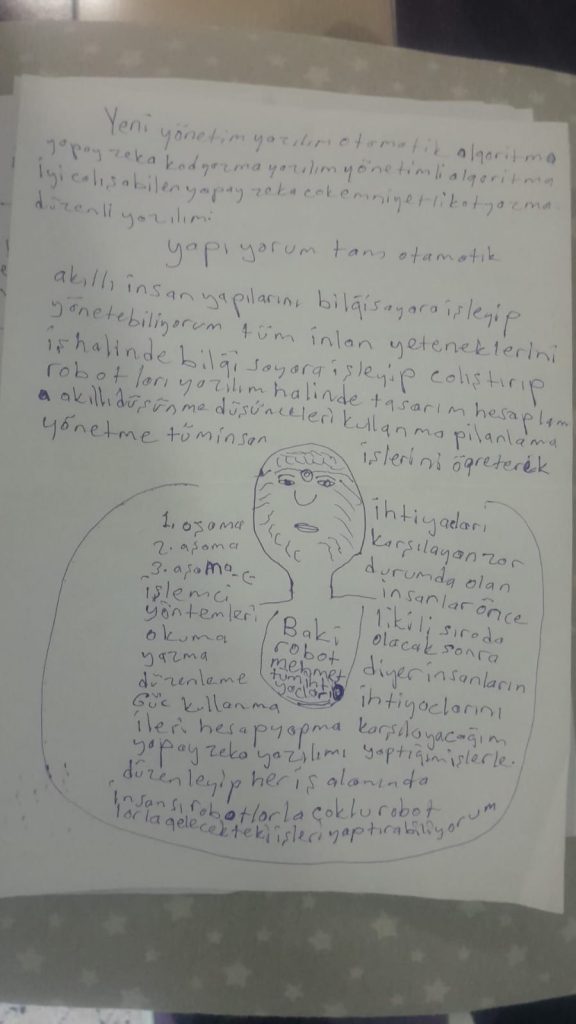 Yeni yönetim yazılım otamatik algoritma
yapay zeka kod yazma yazılım yönetimli algoritma
iyi calışabilen yapay zeka cok emniyetli kot yazma
düzenli yazılımı
yapı yorum tam otamatik
akıllı insan yapılarını bilgisayara işleyip
yönetebiliyorum tüm inlan yeteneklerini
iş halinde bilgi sayara işleyip calıştırıp
robotları yazılım halinde tasarım hesaplam
a akıllı düşünme düşünceleri kullanma pilanlama
yönetme tüm insan
işlerini öğreterek
1. aşama
2. aşama
3. aşama
işlemci
yöntemleri
okuma
yazma
düzenleme
Güc kullanma
Baki
robot
mehmet
tüm ihti
yacları
ihtiyacları
karşılayan zor
durumda olan
insanlar önce
likili sırada
olacak sonra
diyer insanların
ihtiyaclarını
ileri hesap yapma karşılayacağım
yapay zeka yazılımı yaptığım işlerle.
düzenleyip her iş alanında
insansı robotlarla coklu robot
larla gelecekteki işleri yaptırabiliyorum